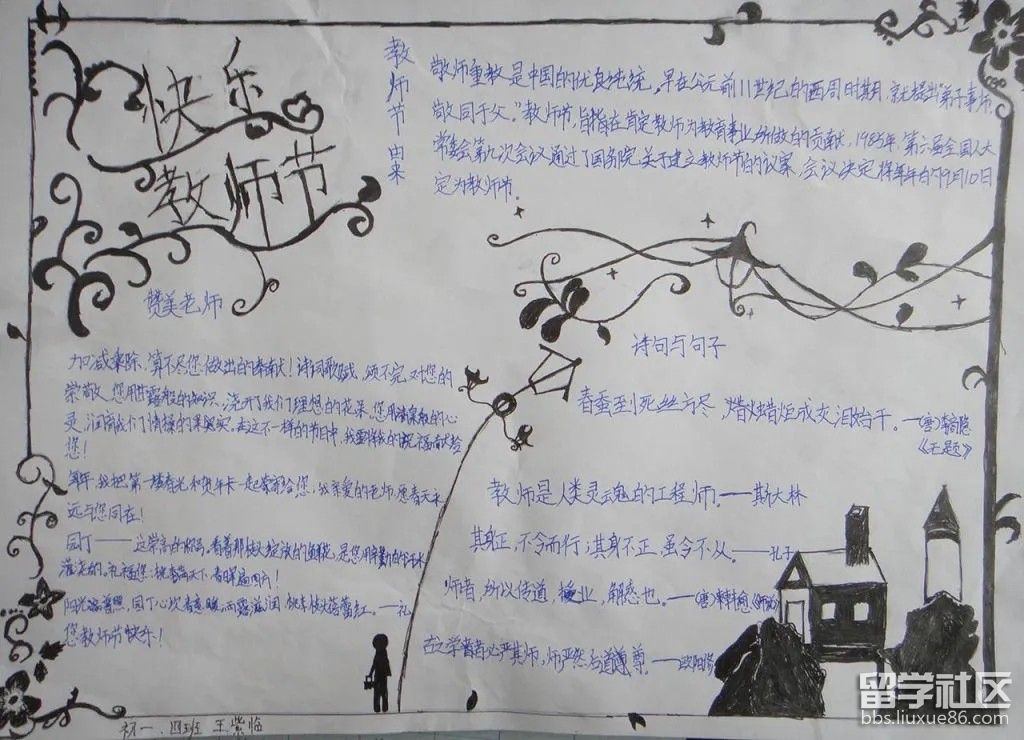 快乐
教师节
教师节由来
敬师重教是中国的优良传统。早在公元前11世纪的西周时期,就提出"弟子事师,
敬同于父。"教师节,旨在肯定教师为教育事业所做的贡献,1985年,第六届全国人大
常委会第九次会议通过了国务院关于建立教师节的议案,会议决定将每年的9月10日
定为教师节。
赞美老师
加减乘除,算不尽您做出的奉献!诗词歌赋,颂不完对您的
崇敬,您用甘露般的知识,浇开了我们理想的花朵,您用清泉般的心
灵,润育我们情操的果实。在这不一样的节日中,我要将我的祝福献给
您!
每年,我把第一缕春光和贺年卡一起寄给您,我亲爱的老师,愿春天永
远与您同在!
园丁——这崇高的称号。看着那做绽放的鲜花,是您用辛勤的汗水
灌浇的。祝福您:桃李满天下,春晖遍四方!
阳光普照,园丁心坎春意暖,雨露滋润,
您教师节快乐!
诗句与句子
春蚕到死丝方尽,蜡炬成灰泪始干。——(唐)李商隐
《无题》
教师是人类灵魂的工程师。——斯大林
其身正,不令而行;其身不正,虽令不从。——孔子
师者,所以传道,授业,解惑也。——(唐)韩愈《师说》
古之学者必严其师,师严然后道尊。——欧阳修
初一.四班 王紫临
留学社区
bbs.liuxue86.com